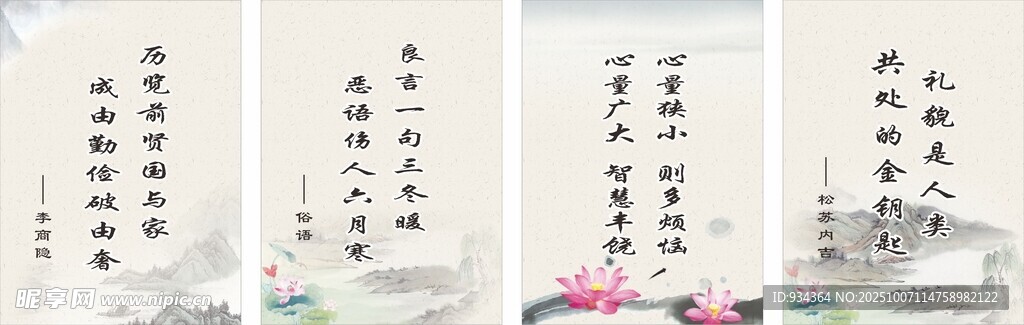 历览前贤国与家
成由勤俭破由奢
——李商隐
良言一句三冬暖
恶语伤人六月寒
——俗语
心量狭小 则多烦恼
心量广大 智慧丰饶
礼貌是人类
共处的金钥匙
——松苏内吉
昵享网 www.nipic.cn
ID:934364 NO:20251007114758982122